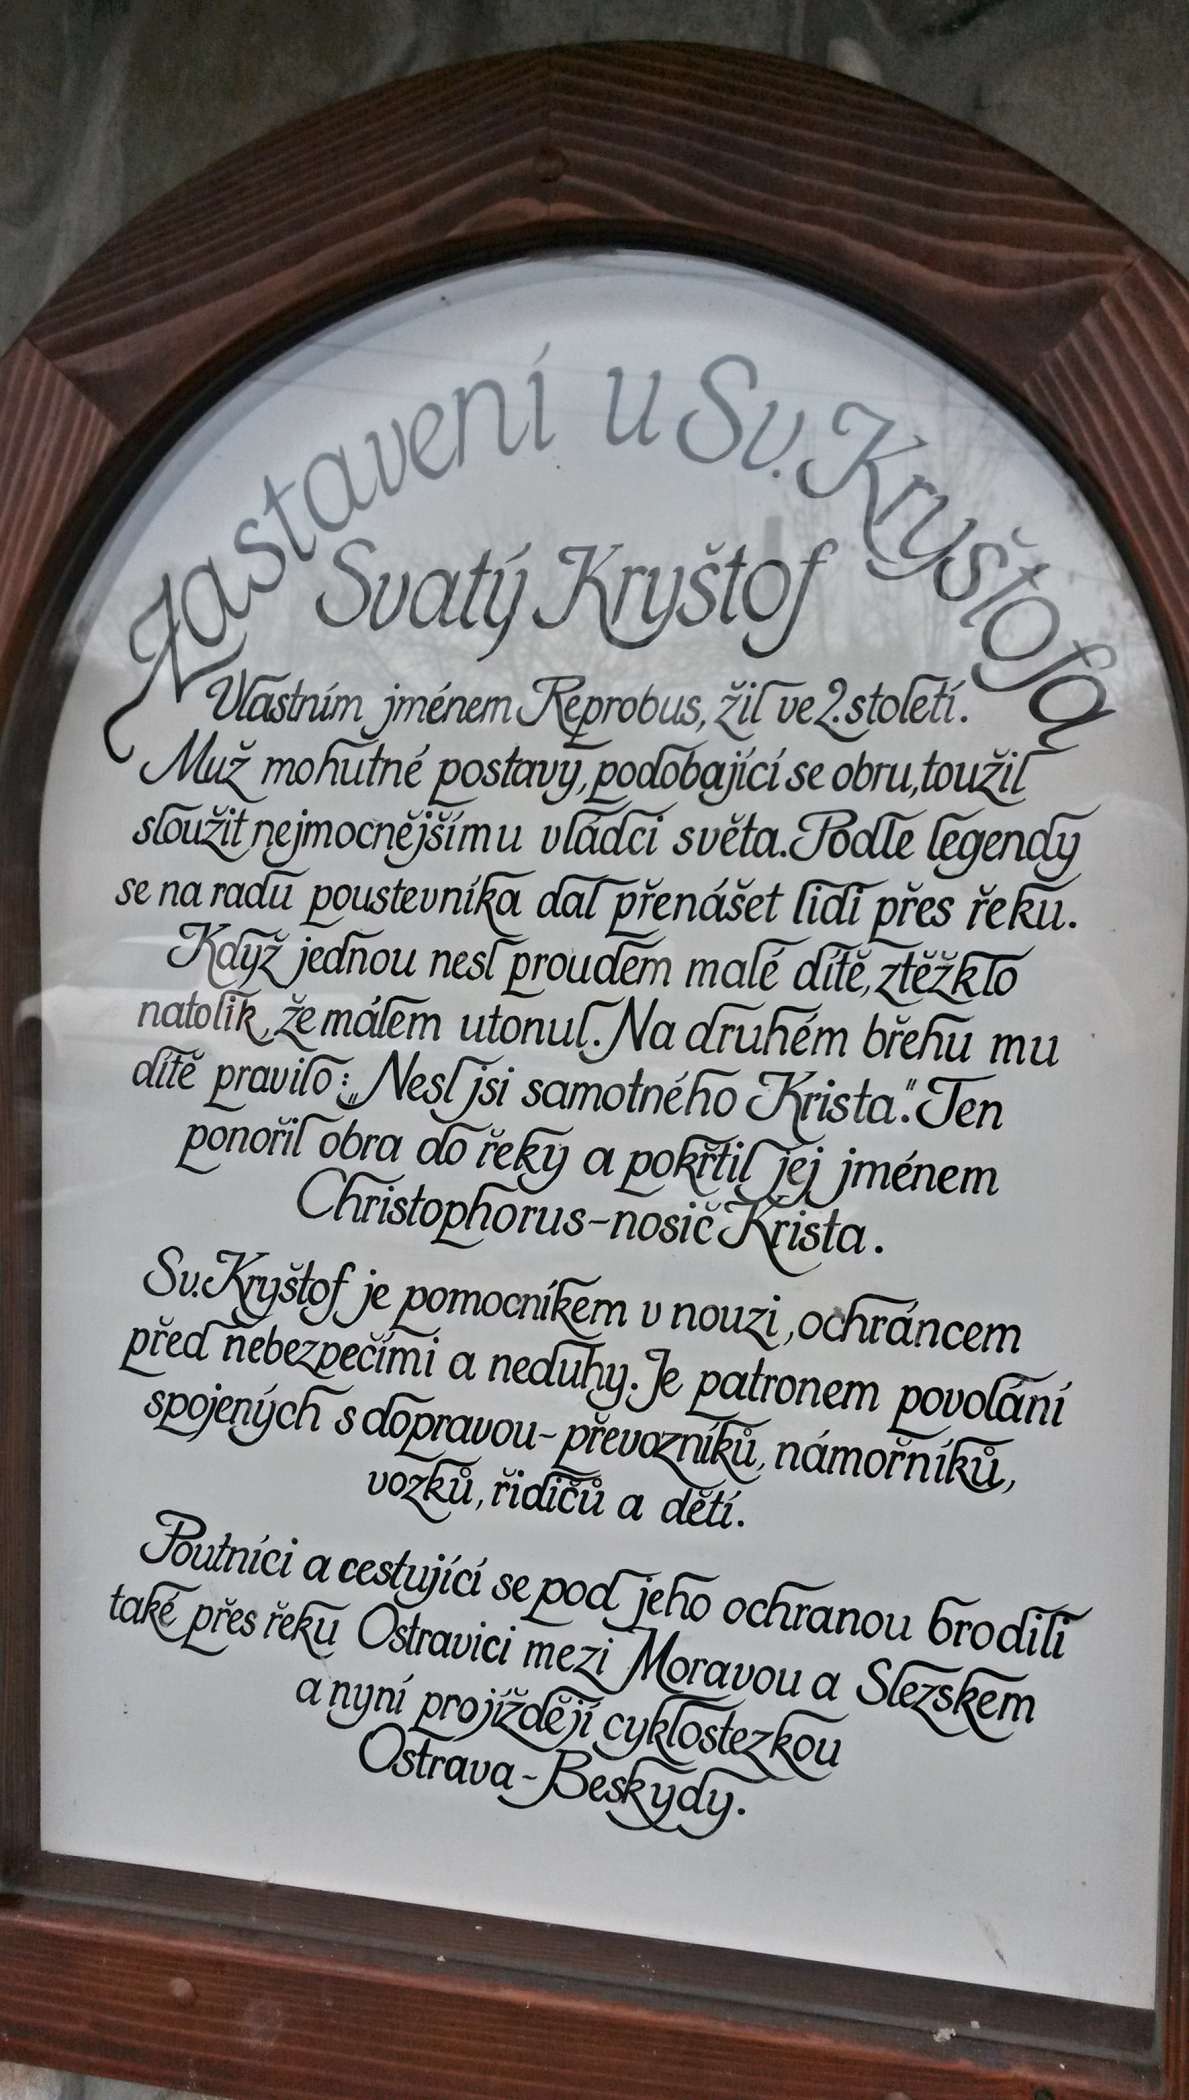 Zastavení u Sv. Kryštofa
Svatý Kryštof
Vlastním jménem Reprobus, žil ve 2. století.
Muž mohutné postavy, podobající se obru, toužil
sloužit nejmocnějšímu vládci světa. Podle legendy
se na radu poustevníka dal přenášet lidi přes řeku.
Když jednou nesl proudem malé dítě, ztěžklo
natolik, že málem utonul. Na druhém břehu mu
dítě pravilo: „Nesl jsi samotného Krista." Ten
ponořil obra do řeky a pokřtil jej jménem
Christophorus-nosič Krista.
Sv. Kryštof je pomocníkem v nouzi, ochráncem
před nebezpečími a neduhy. Je patronem povolání
spojených s dopravou- převozníků, námořníků,
vozků, řidičů a dětí.
Poutníci a cestující se pod jeho ochranou brodili
také přes řeku Ostravici mezi Moravou a Slezskem
a nyní projíždějí cyklostezkou
Ostrava-Beskydy.